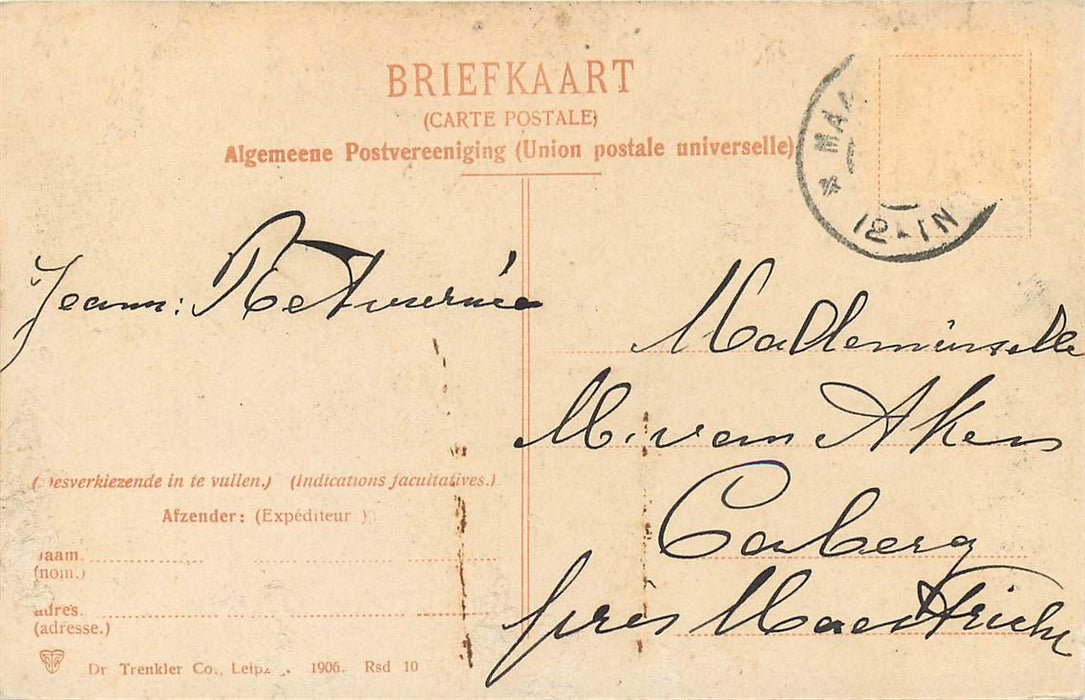 BRIEFKAART
(CARTE POSTALE)
Algemeene Postvereeniging (Union postale universelle)
MAA
12-1N
Jeann:
Mademoiselle
M. van Aken
Caberg
près Maestricht
(desverkiezende in te vullen.) (Indications facultatives.)
Afzender: (Expéditeur)
Naam.
(nom.)
adres.
(adresse.)
Dr Trenkler Co., Leipz. 1906. Rsd 10